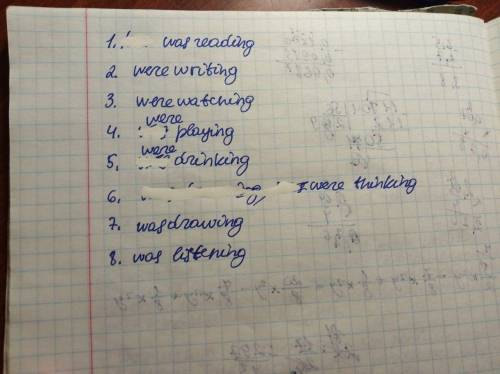 1. was reading
2. were writing
3. were watching
4. were playing
5. were drinking
6. were thinking
7. was drawing
8. was listening